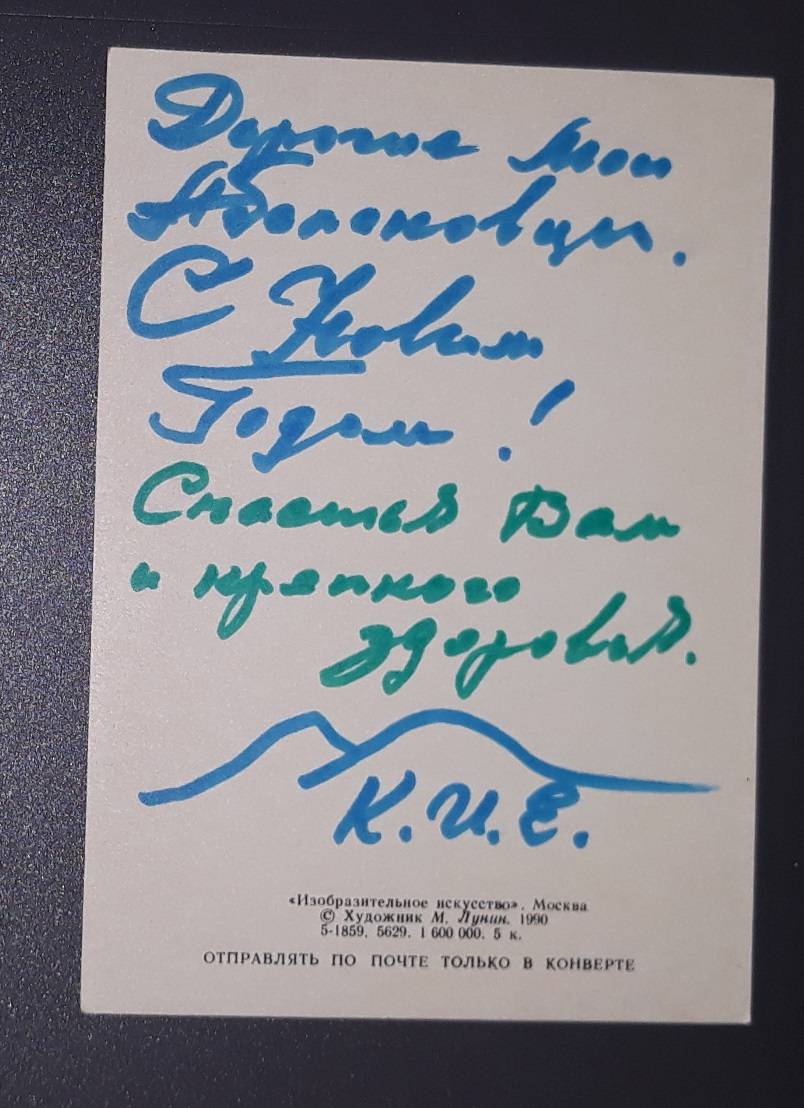 Дорогие мои
С Новым
Годом!
Счастья Вам
и крепкого
здоровья.
К.И.Е.
«Изобразительное искусство». Москва
© Художник М. Лунин. 1990
5-1859. 5629. 1 600 000. 5 к.
ОТПРАВЛЯТЬ ПО ПОЧТЕ ТОЛЬКО В КОНВЕРТЕ